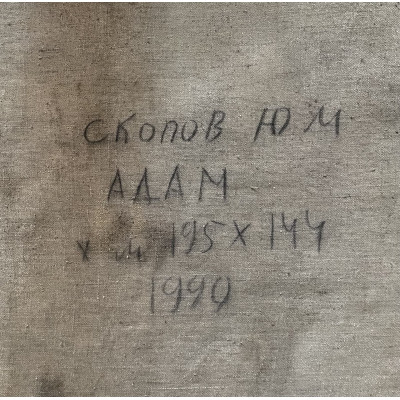 СКОПОВ Ю М
АДАМ
х м 195 х 144
1990